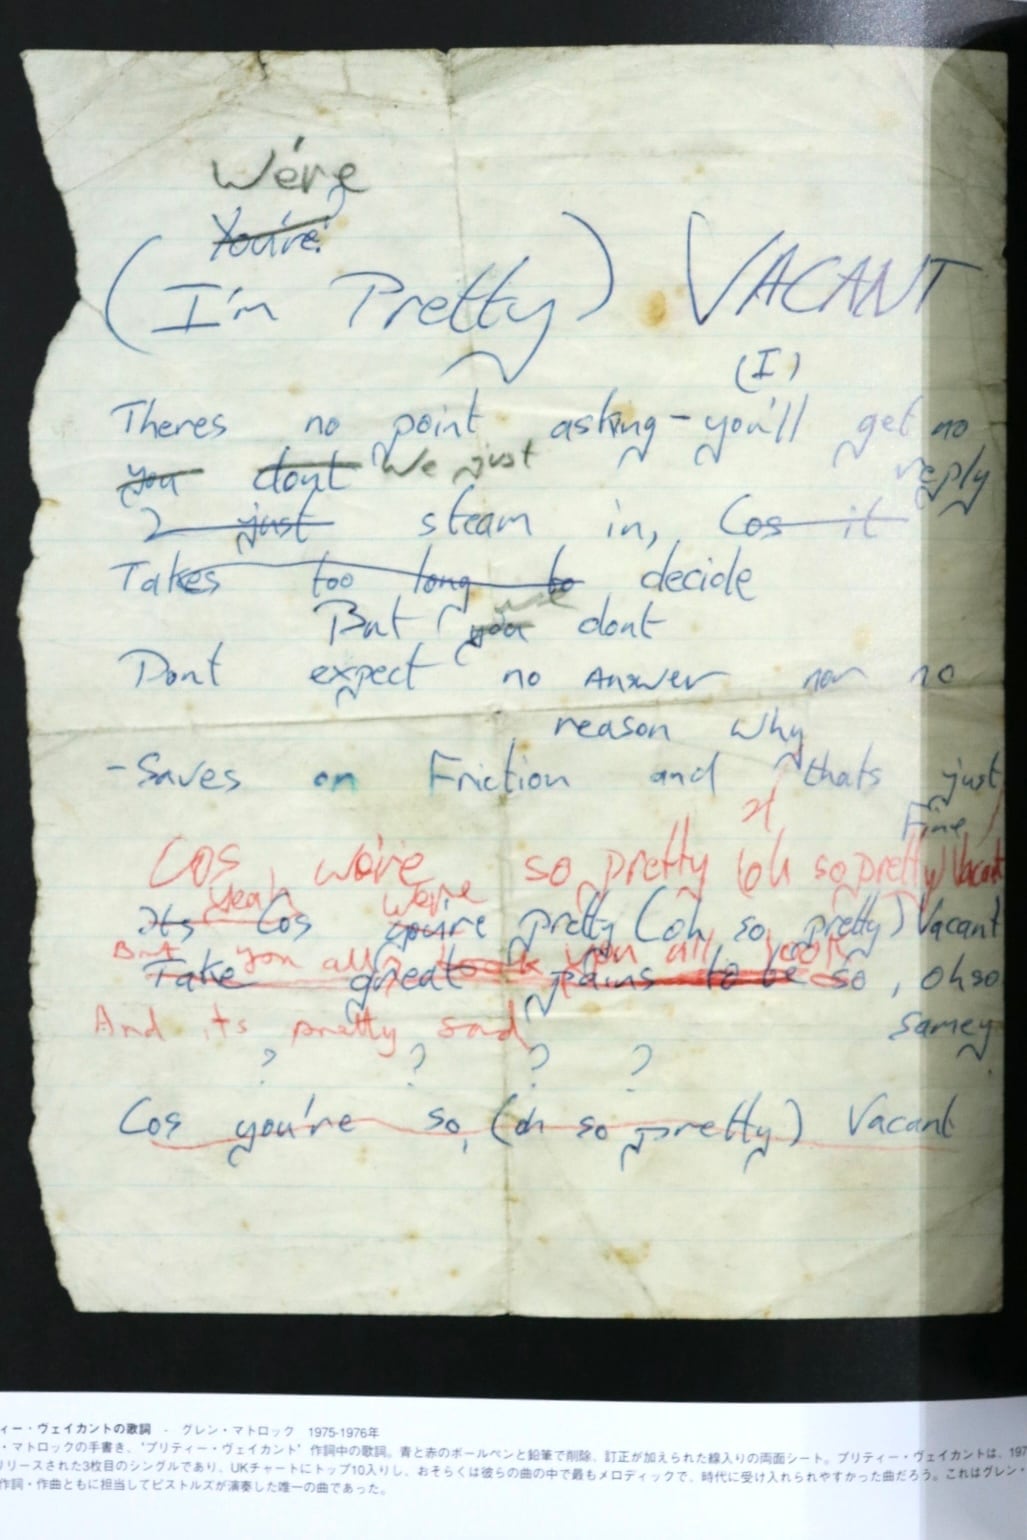 We're
You're
(I'm Pretty) VACANT
(I)
Theres no point asking - you'll get no
reply
you dont We just
just steam in, Cos it
Takes too long to decide
But you dont
Dont expect no ANSWER nor no
reason why
- Saves on Friction and thats just
Fine
Cos we're so pretty (oh so pretty) Vacant
Yeah We're
Its Cos youre pretty (oh so pretty) Vacant
But you all look you all look
Take great pains to be so, oh so
samey
And its pretty sad
? ? ? ?
Cos you're so, (oh so pretty) Vacant
ィー・ヴェイカントの歌詞 - グレン・マトロック 1975-1976年
・マトロックの手書き、'プリティー・ヴェイカント' 作詞中の歌詞。青と赤のボールペンと鉛筆で削除、訂正が加えられた線入りの両面シート。プリティー・ヴェイカントは、197
リリースされた3枚目のシングルであり、UKチャートにトップ10入りし、おそらくは彼らの曲の中で最もメロディックで、時代に受け入れられやすかった曲だろう。これはグレン・
作詞・作曲ともに担当してピストルズが演奏した唯一の曲であった。